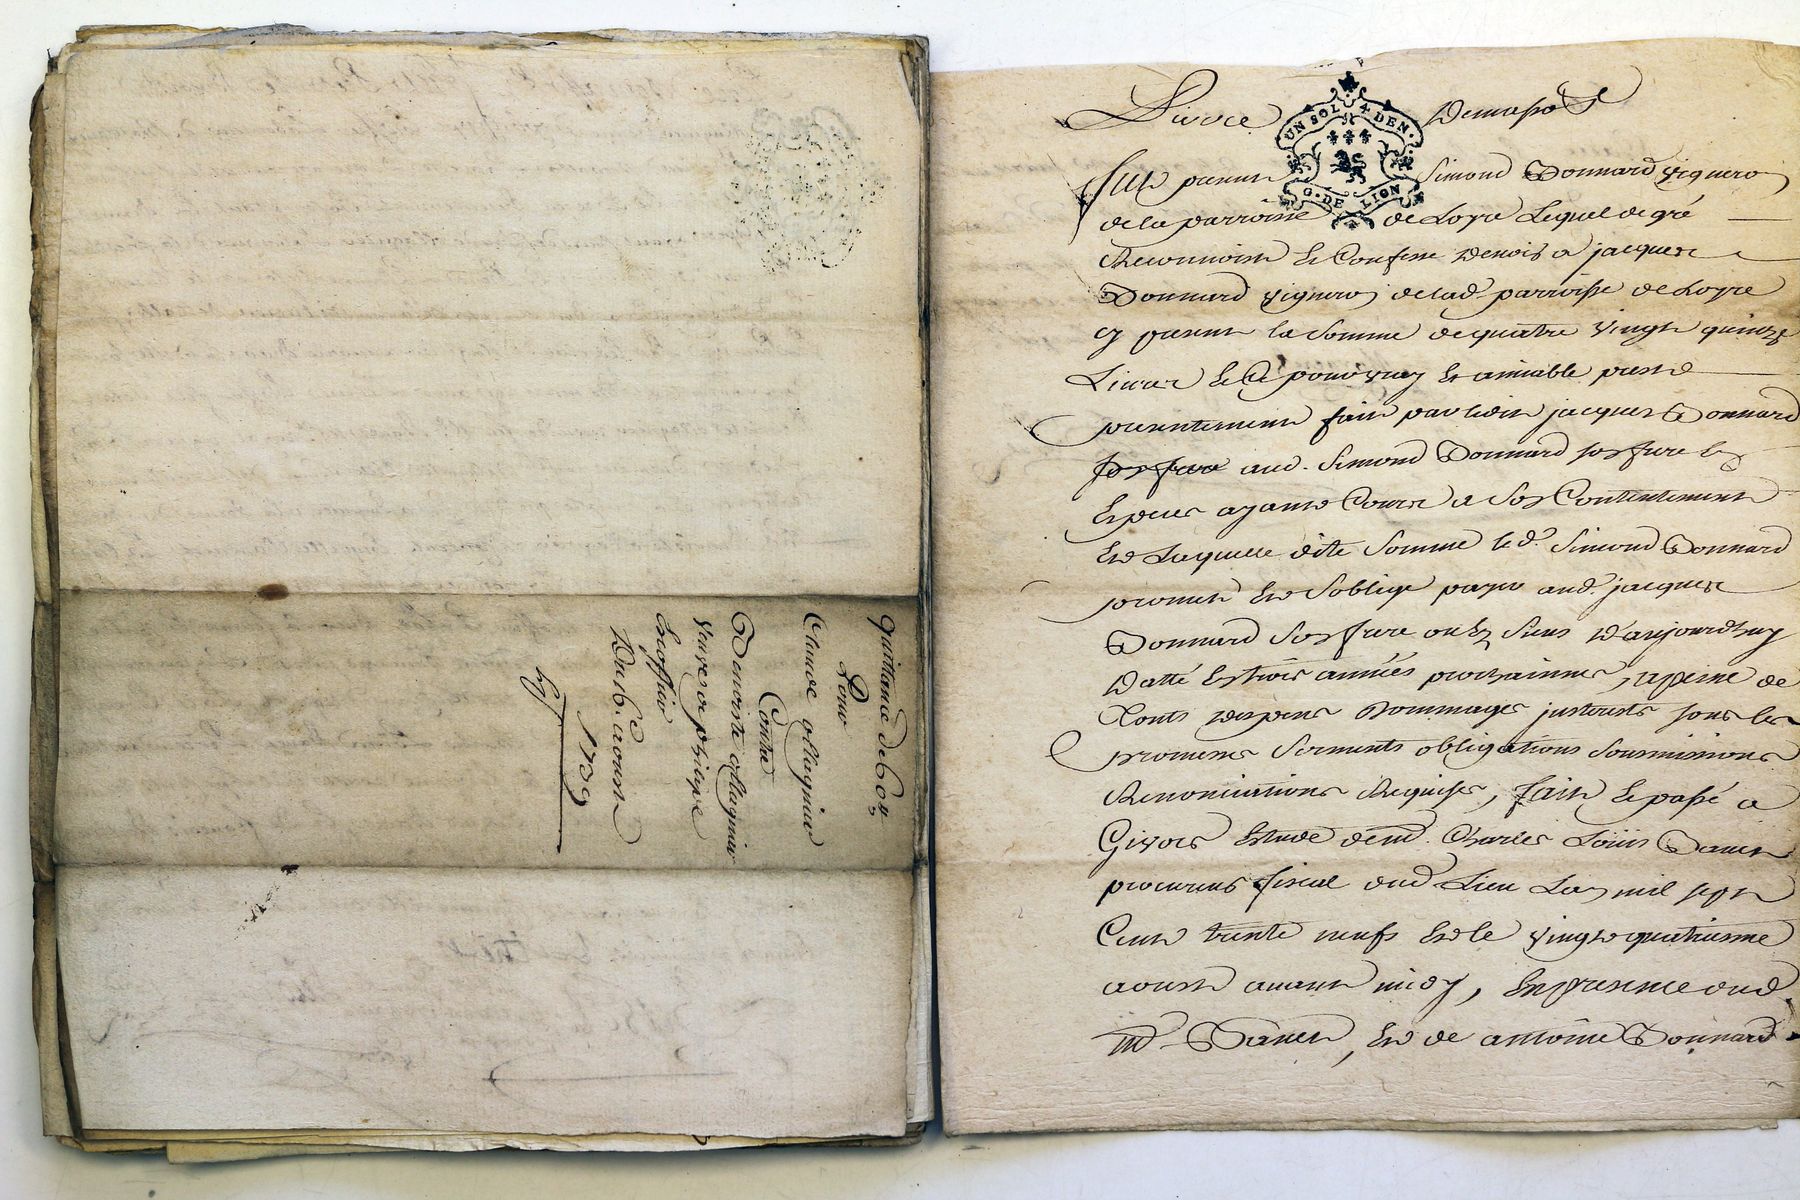 quittance de 60ᵗᵗ
Pour
Claude Magnin
Contre
Benoiste Magnin
veuve de phileppe
Escoffier
Du 16. aoust
1739
UN SOL 4 DEN.
G. DE LION
fut present Simond Bonnard vigneron
de la parroisse de Loyre Lequel de gré
Reconnoist Et Confesse devoir a jacques
Bonnard vigneron de lad. parroisse de Loyre
cy present la Somme de quatre vingt quinze
Livres Et Ce pour vray Et amiable prest
presentement fait par ledit jacques Bonnard
son frere aud. Simond Bonnard son frere En
Especes ayant Cours a Son Contentement
Et Laquelle dite Somme led. Simond Bonnard
promet Et S'oblige payer aud. jacques
Bonnard Son frere ou Es Siens D'aujourdhuy
Datte En trois années prochaines, a peine de
Touts Depens Dommages justousts sous les
promesses Serments obligations Soumissions
Renonciations Requises, fait Et passé a
Givors Estude de md. Charles Loüis
procureur fiscal dud. Lieu Lan mil sept
Cent trente neuf Et le vingt quatrieme
aoust avant midy, En presence dud.
Et de antoine Bonnard